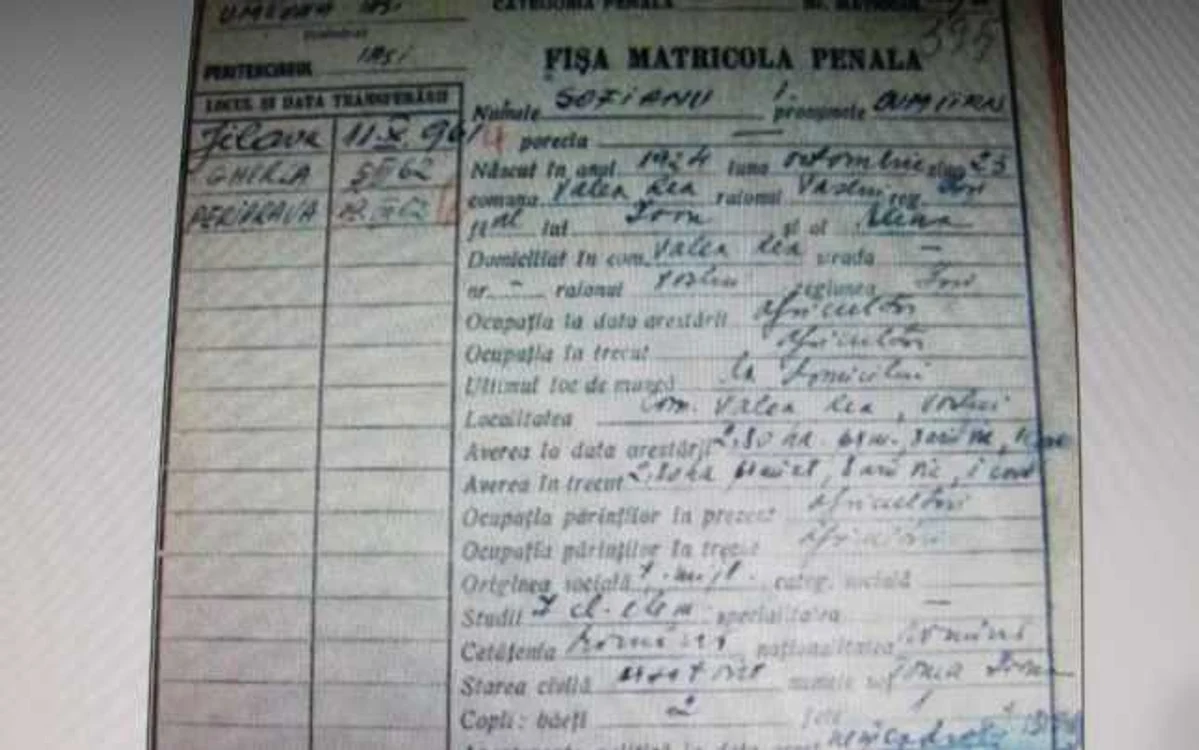 CATEGORIA PENALĂ
PENITENCIARUL IAȘI
FIȘA MATRICOLA PENALA
LOCUL ȘI DATA TRANSFERĂRII
Numele SOFIANU I. prenumele DUMITRU
Jilava 11 X. 961
porecla —
GHERLA 5 III 62
Născut în anul 1924 luna octombrie ziua 23
comuna Valea Rea raionul Vaslui reg. Iași
PERIPRAVA
fiul lui Ion și al Elena
Domiciliat în com. Valea Rea strada —
nr. - raionul Vaslui regiunea Iași
Ocupația la data arestării agricultor
Ocupația în trecut agricultor
Ultimul loc de muncă la domiciliu
Localitatea com. Valea Rea, Vaslui
Averea la data arestării 2,80 ha.
Averea în trecut 2,80 ha
Ocupația părinților în prezent agricultori
Ocupația părinților în trecut agricultori
Originea socială categ. socială
Studii 7 cl. elem specialitatea —
Cetățenia Română naționalitatea Română
Starea civilă numele
Copii: băeți 2 fete 1